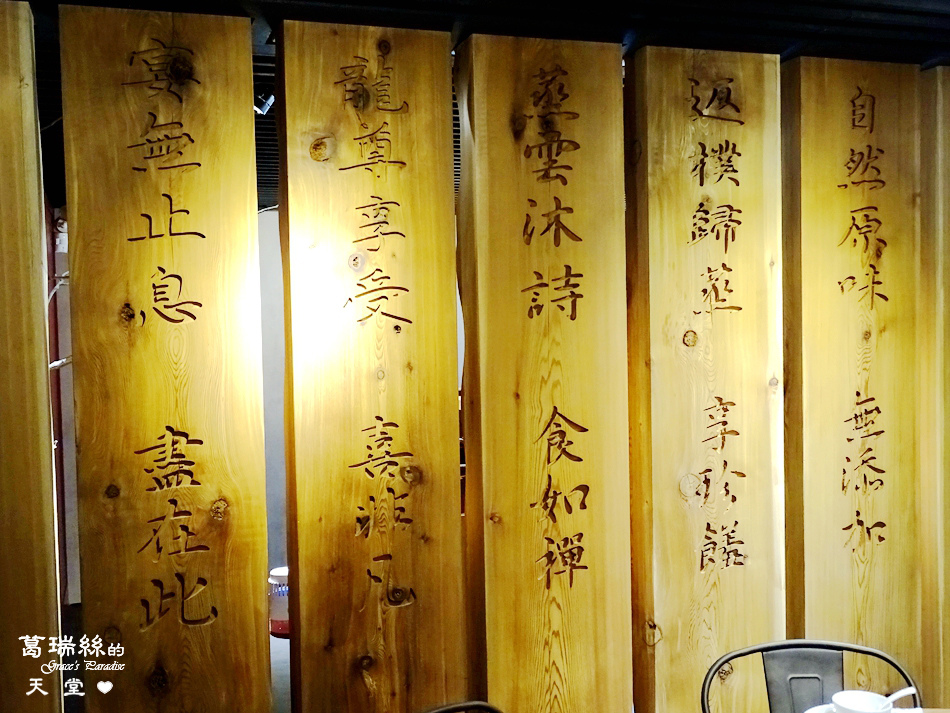 自然原味 無添加
返樸歸蒸 享珍饈
蒸雲沐詩 食如禪
龍尊享受 喜非凡
宴無止息 盡在此
葛瑞絲的
Grace's Paradise
天堂